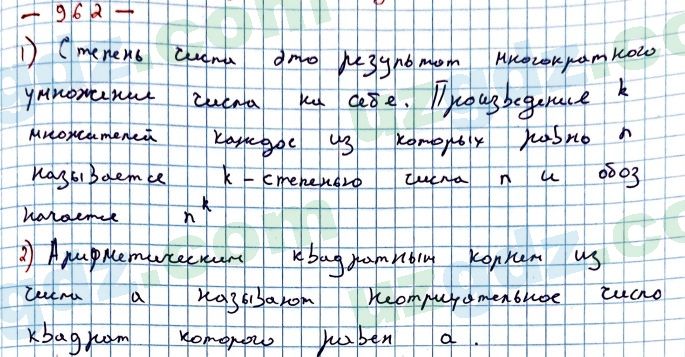 - 962 -
1) Степень числа это результат многократного
умножение числа на себе. Произведение k
множителей каждое из которых равно n
называется k-степенью числа n и обоз
начается n^k
2) Арифметическим квадратным корнем из
числа a называют неотрицательное число
квадрат которого равен a.